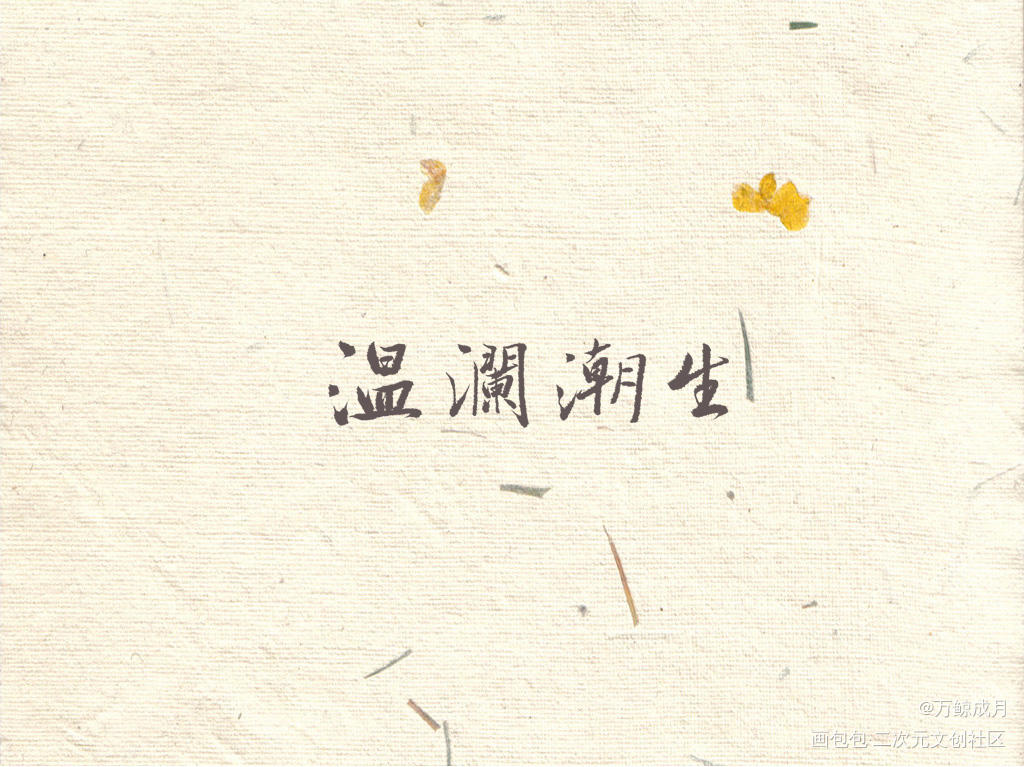 温澜潮生
@万鲸成月
画包包·二次元文创社区